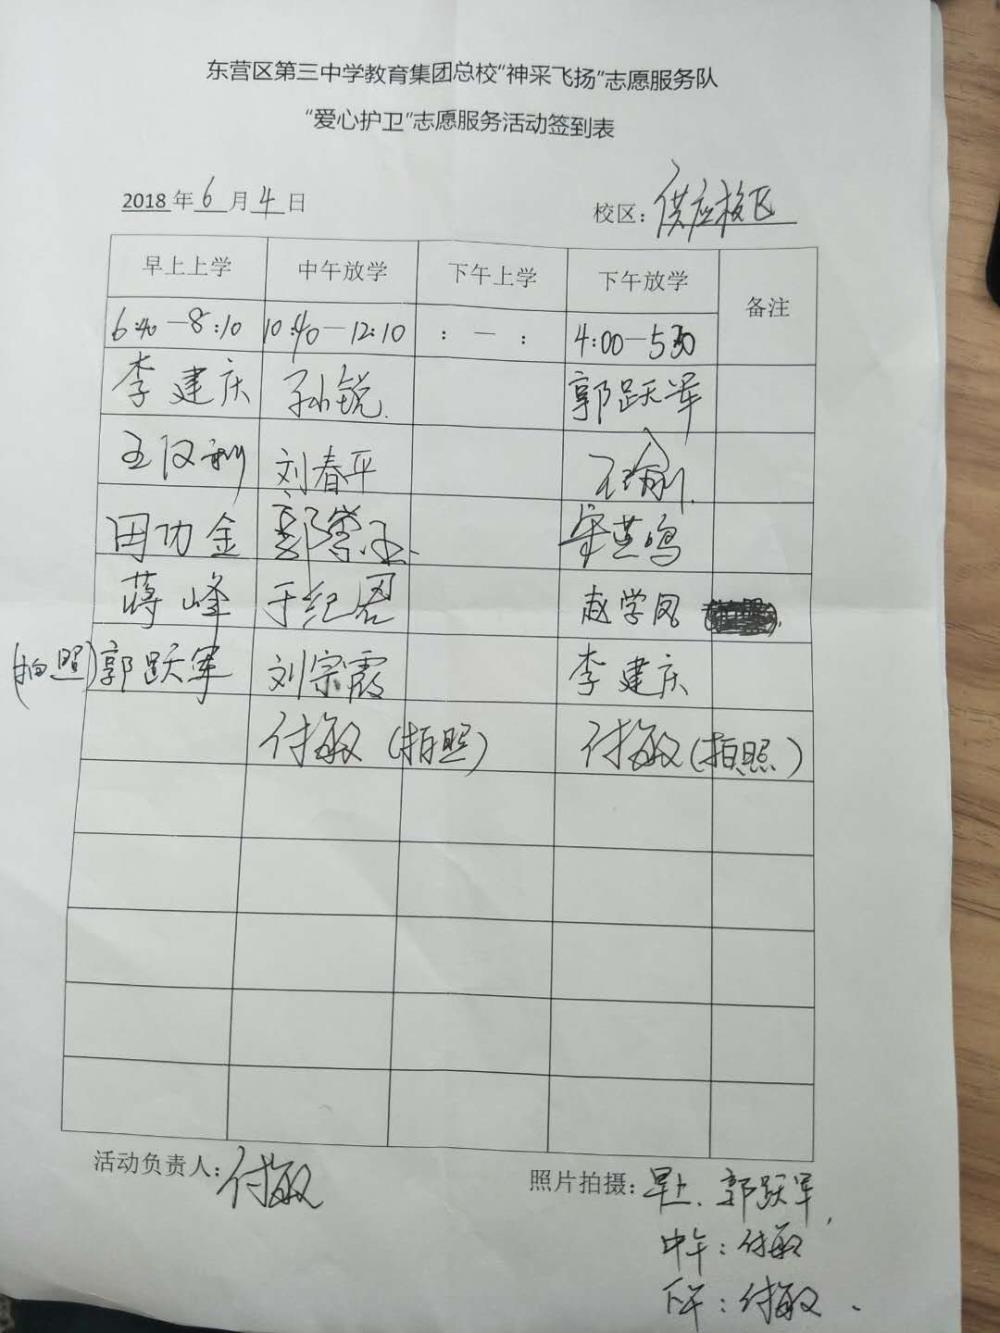 东营区第三中学教育集团总校"神采飞扬"志愿服务队
"爱心护卫"志愿服务活动签到表
2018年6月4日 校区：供应校区
早上上学 中午放学 下午上学 下午放学 备注
6:40—8:10 10:40—12:10 : — : 4:00—5:30
李建庆 孙锐 郭跃军
王汉利 刘春平
田功金 郭
蒋峰 于纪 赵学凤
(拍照)郭跃军 刘宗霞 李建庆
付敏(拍照) 付敏(拍照)
活动负责人：付敏 照片拍摄：早上、郭跃军,
中午：付敏
下午：付敏.